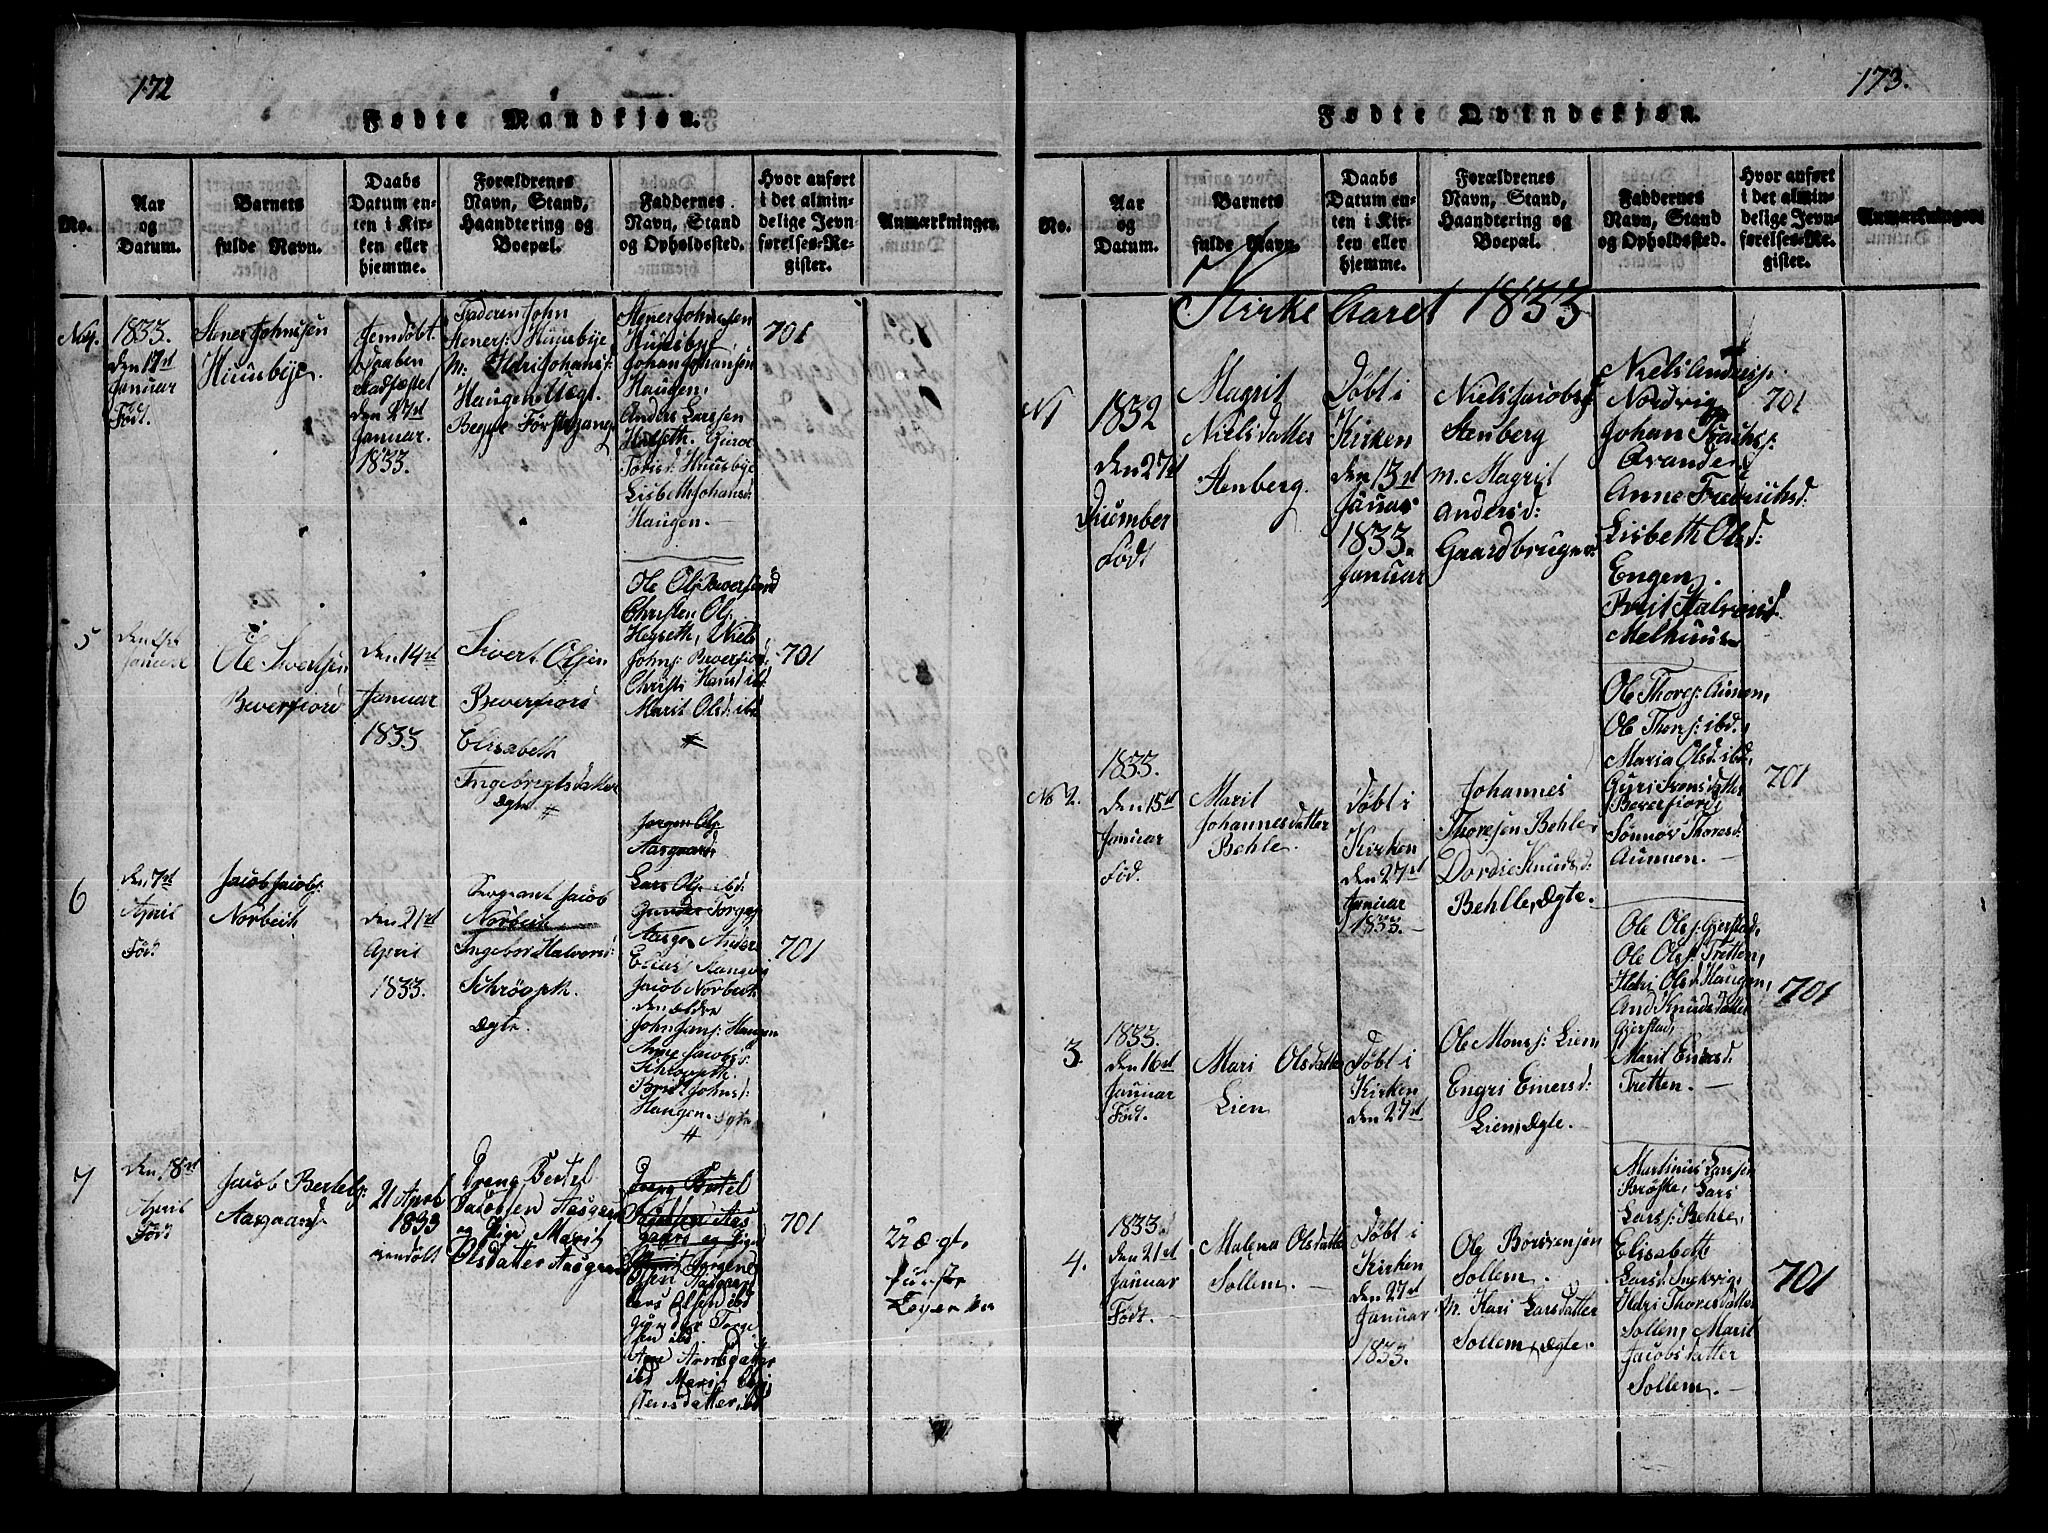 172
Fødte Mandkjøn.
No.
Aar
og
Datum.
Barnets
fulde Navn.
Daabs
Datum en-
ten i Kir-
ken eller
hjemme.
Forældrenes
Navn, Stand,
Haandtering og
Boepæl.
Faddernes
Navn, Stand
og Opholdssted.
Hvor anført
i det almin-
delige Jevn-
førelses-Re-
gister.
Anmærkninger.
No 4.
1833.
den 17st
Januar
Født.
Stener Johnssen
Huusbye.
Hjemdøbt.
Daaben
Stadfæstet
den 27st
Januar.
1833.
Faderen John
Steners: Huusbye
M: Ildri Johansd:
Haugen Uægt.
Begge Førstegang
Stener Johnssen
Huusbye
Johan Johansen
Haugen,
Anders Larssen
Halseth. Guroe
Toresd: Huusbye
Lisbeth Johansd:
Haugen.
701
5
Januar
Ole Sivertsen
Beverfiord
den 14st
Januar
1833
Sivert Olsen
Beverfiord
Elisabeth
Ingebregtsdatter
Ægte #
Ole Ols: Beverfiord
Christen Ols:
Hegseth, Niels
Johns: Beverfiord,
Christi Hansd ibd
Marit Olsd: ibd
#
701
6
den 7st
April
Født.
Jacob Jacobs:
Norbech
den 21st
April
1833.
Sergeant Jacob
Norbech
Ingebor Halvorsd:
Schrøopth.
Ægte.
Jørgen Ols:
Aasgaard:
Lars Ols: ibd:
Gunder Torges
Aasge Anders
Elias: Stangvig
Jacob Norbech
den eldre
John Jans: Haugen
Anne Jacobsd:
Schroopth
Berit Johnsd:
Haugen. Ægte
#
701
7
den 18st
April
Født
Jacob Bertels:
Aasgaard
21 April
1833
Dreng Bertel
Jacobsen Aasgaard
og Pige Marit
Olsdatter Aasgaard
Dreng Bertel
Jacobsen Aas
gaard og Pige
Marit Jørgene
Olsen Aasgaard
Lars Olsen ibd
Gunder Torge
sen ibd.
Ane Arnsdatter
ibd Marit Chri
stensdatter, ibd
701
Uægt.
første
Leyer

173.
Fødte Qvindekjøn.
No.
Aar
og
Datum.
Barnets
fulde Navn.
Daabs
Datum en-
ten i Kir-
ken eller
hjemme.
Forældrenes
Navn, Stand,
Haandtering og
Boepæl.
Faddernes
Navn, Stand
og Opholdssted.
Hvor anført
i det almin-
delige Jevn-
førelses-Re-
gister.
Anmærkninger.
Kirke Aaret 1833
N 1
1832
den 27st
December
Født
Magrit
Nielsdatter
Stenberg.
Døbt i
Kirken
den 13st
Januar
1833.
Januar
Niels Jacobs:
Stenberg
m. Magrit
Andersd:
Gaardbruger
Niels Anders:
Nordvig
Johan
Avande
Anne Fredrichsd.
Lisbeth Olsd:
Engen
Berit Halvorsd.
Melhuus
701
No 2.
1833.
den 15st
Januar
Fød.
Marit
Johannesdatter
Behle.
Døbt i
Kirken
den 27st
Januar
1833.
Johannes
Thoresen Behle
Dordie Knudsd:
Behlle, Ægte.
Ole Thores: Aunen,
Ole Thors: ibd.,
Maria Olsd: ibd,
Guri Ivarsdatter
Beverfiord,
Sønnøv Thoresd:
Aunnen.
701
3.
1833.
den 16st
Januar
Født.
Mari Olsdatter
Lien
Døbt i
Kirken
den 27st
Ole Mons: Lien
Engri Einersd:
Lien, Ægte.
Ole Ols: Gjerstad,
Ole Ols: Tretten,
Ildri Olsd: Haugen,
And Knudsdatter
Gjerstad,
Marit Enersd:
Tretten.
701
4.
1833.
den 21st
Januar
Født.
Malena Olsdatter
Sollem.
Døbt i
Kirken
den 27st
Januar
1833.
Ole Børsvensen
Sollem.
M. Kari Larsdatter
Sollem, Ægte.
Martinus Larssen
Brøske, Lars
Lars: Behle,
Elisabeth
Larsd: Snekvig,
Ildri Thoresdatter
Sollen, Marit
Jacobsdatter
Sollem.
701